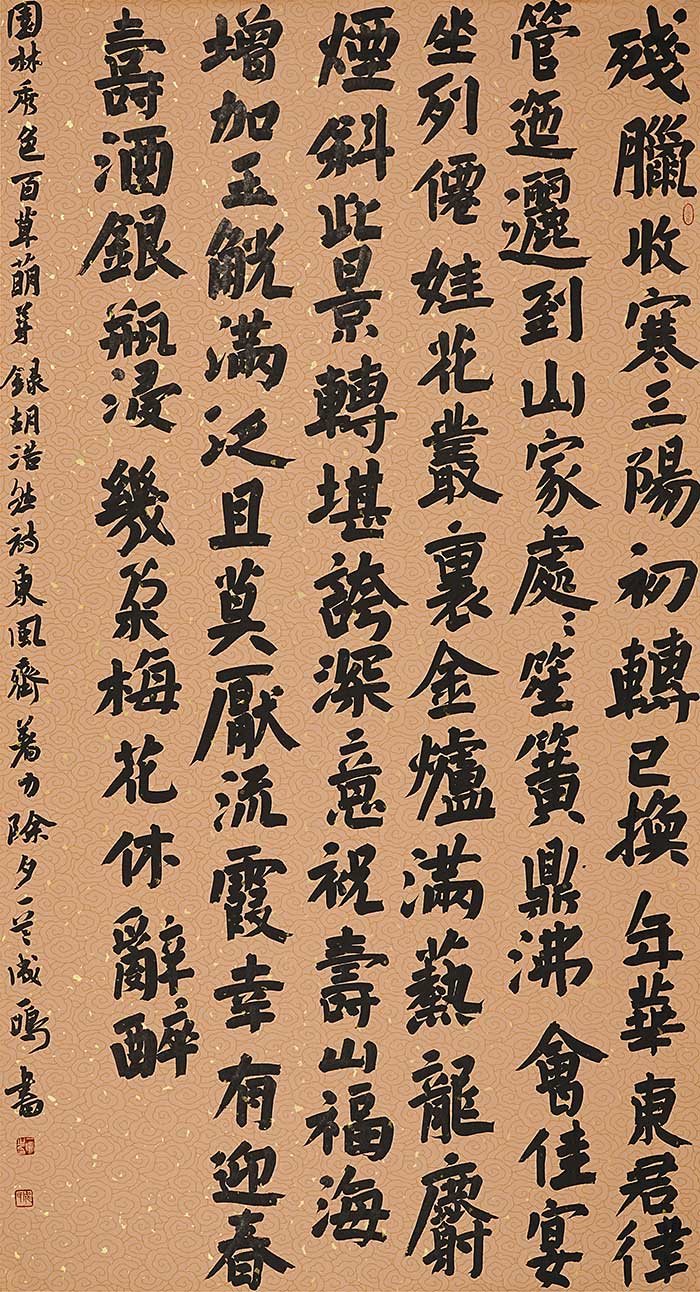 殘臘收寒三陽初轉已換年華東君律
管迤邐到山家處〻笙簧鼎沸會佳宴
坐列僊娃花叢裏金爐滿爇龍麝
煙斜此景轉堪誇深意祝壽山福海
增加玉觥滿泛且莫厭流霞幸有迎春
壽酒銀瓶浸幾朵梅花休辭醉
園林秀色百草萌芽錄胡浩然詞東風齊著力除夕一首成書